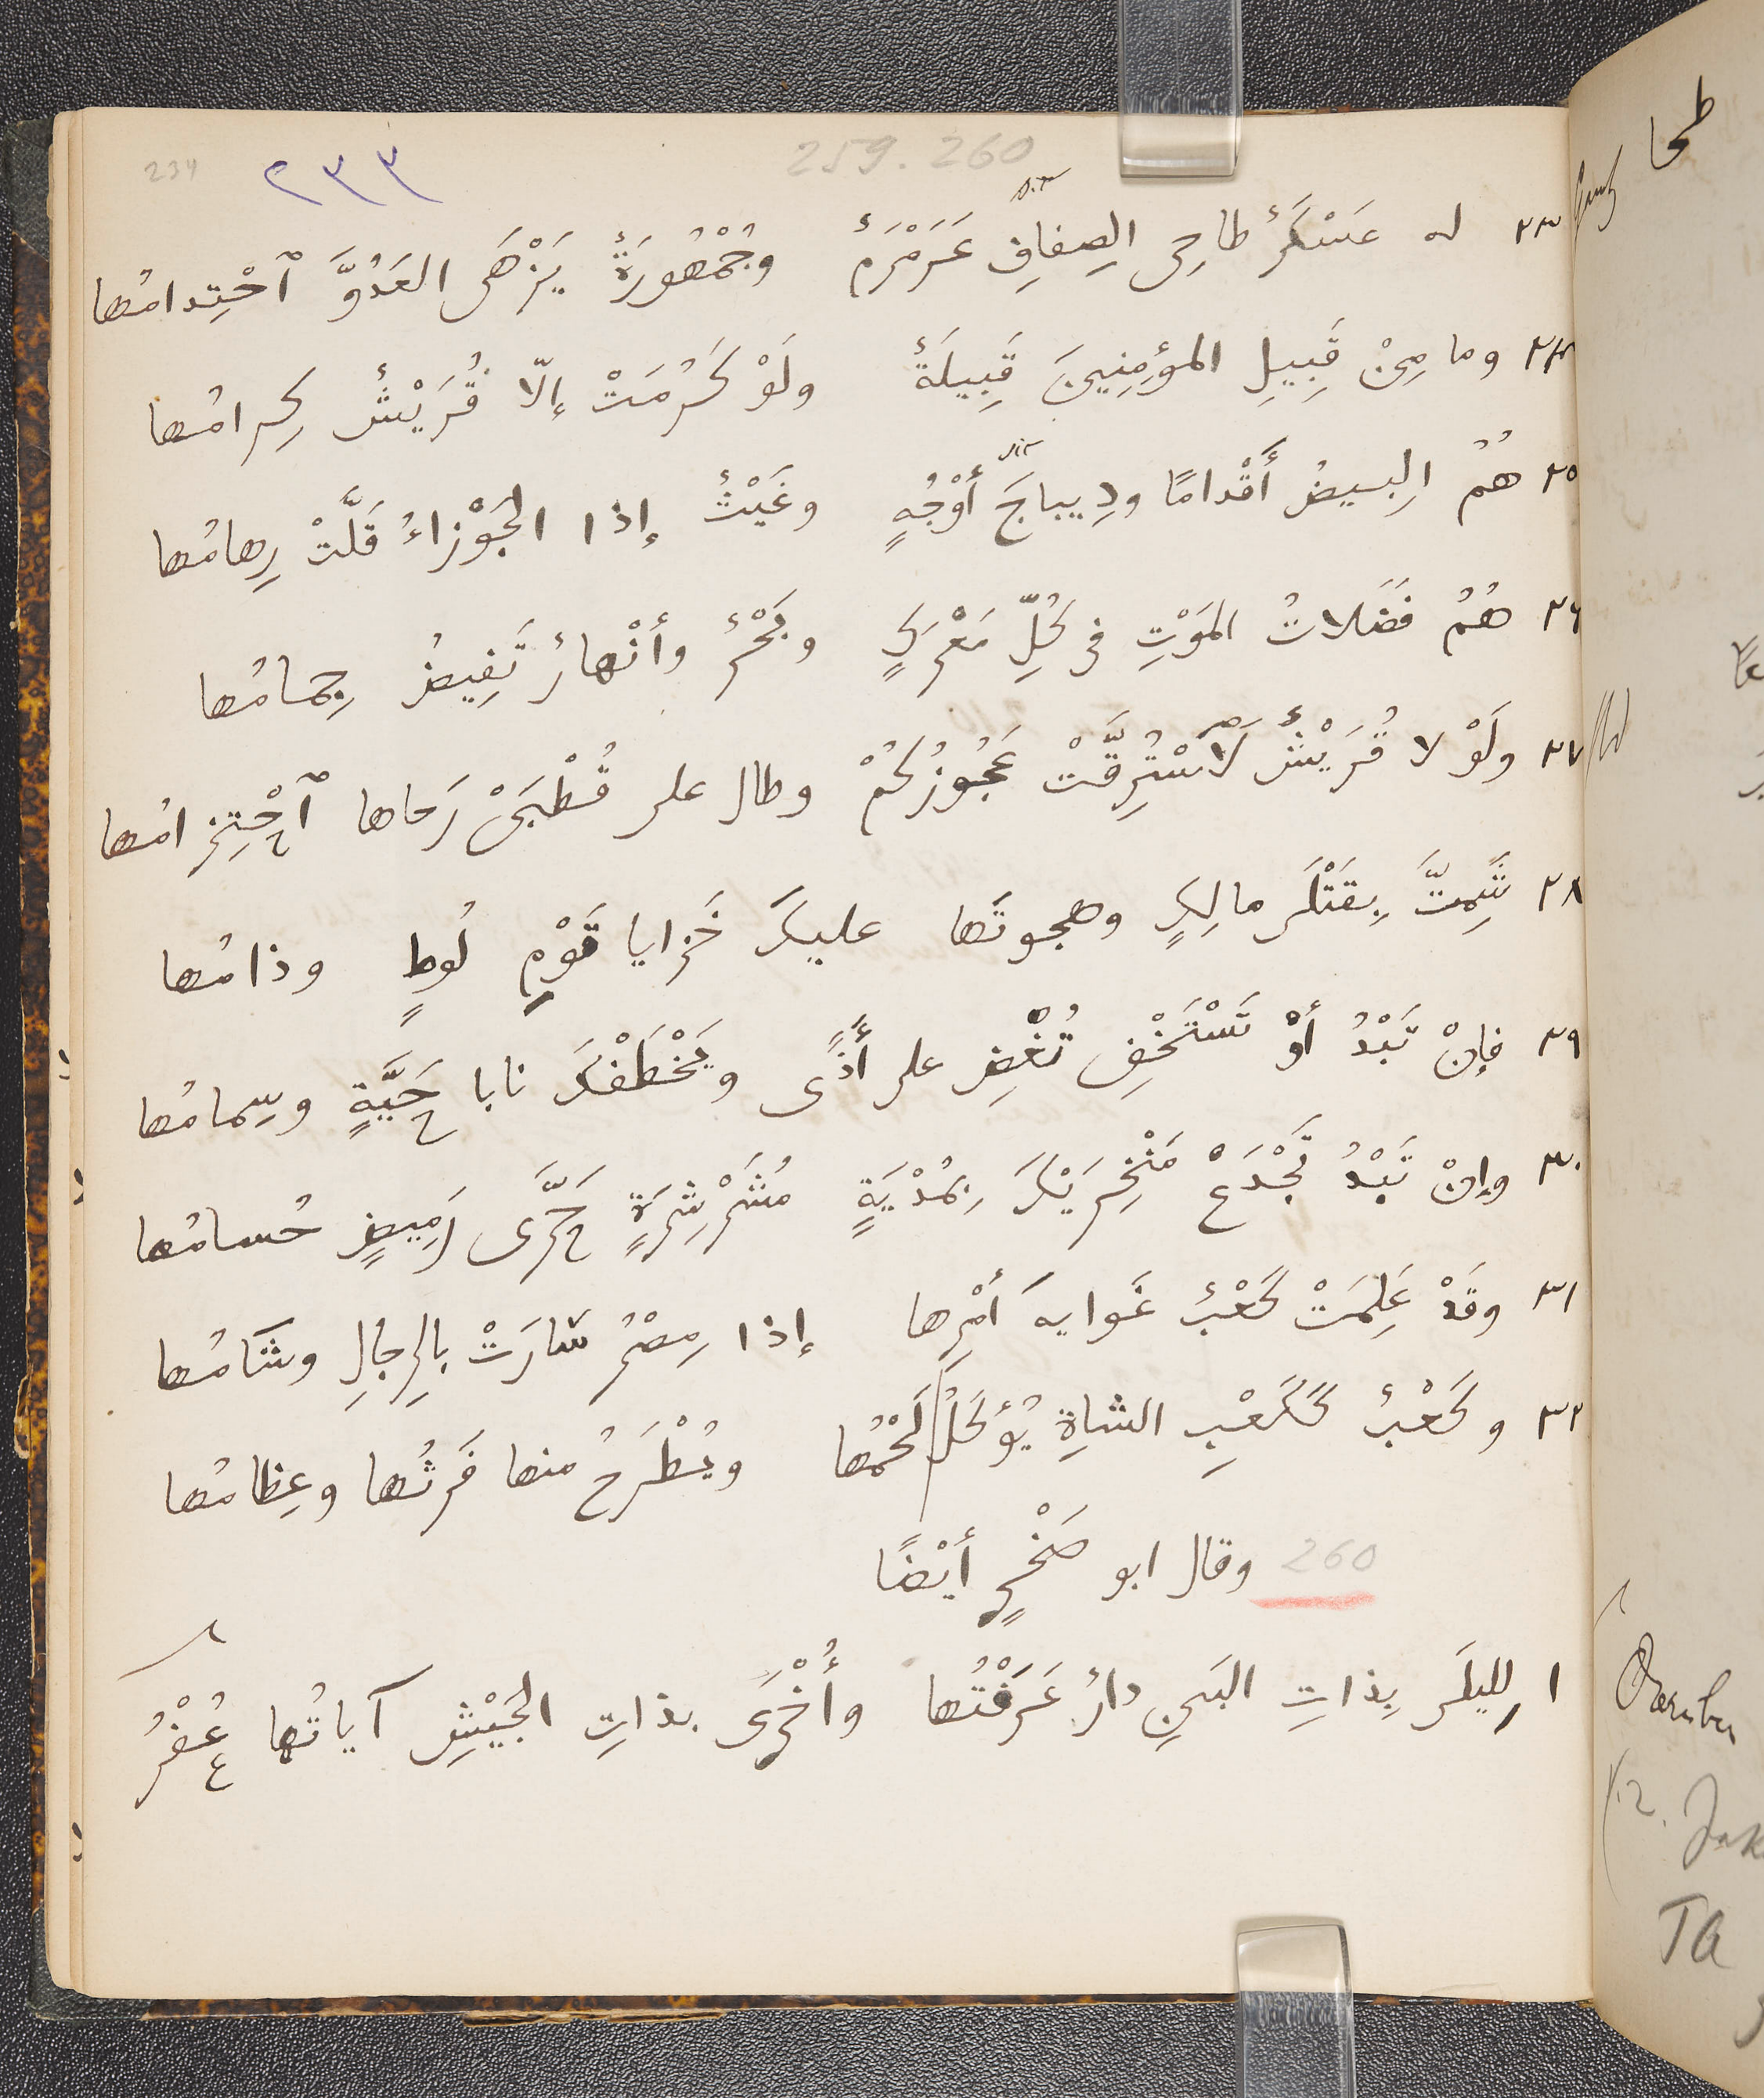 259. 260
٢٣٣
234
٢٣ له عَسْكَرٌ طاحِى الصِفافِ عَرَمْرَمٌ وجُمْهُورَةٌ يَزْهَى العَدُوَّ ٱحْتِدامُها
٢٤ وما مِنْ قَبِيلِ المؤمِنِينَ قَبِيلَةٌ ولَوْ كَرُمَتْ إلّا قُرَيْشٌ كِرامُها
٢٥ هُمُ البيضُ أَقْدامًا ودِيباجَ أَوْجُهٍ وغَيْثٌ إذا الجَوْزاءُ قَلَّتْ رِهامُها
٢٦ هُمُ فَضَلاتُ المَوْتِ فى كُلِّ مَعْرَكٍ وبَحْرٌ وأنْهارٌ تَفِيضُ جِمامُها
٢٧ ولَوْ لا قُرَيْشٌ لَٱسْتُرِقَّتْ عَجُوزُكُمْ وطال على قُطْبَىْ رَحاها ٱحْتِزامُها
٢٨ شَمِتَّ بِقَتْلَى مالِكٍ وهجوتَها عليكَ خَزايا قَوْمِ لُوطٍ وذامُها
٢٩ فإنْ تَبْدُ أوْ تَسْتَخْفِ تُغْضِ على أَذًى ويَخْطَفْكَ نابا حَيَّةٍ وسِمامُها
٣٠ وإنْ تَبْدُ تَجْدَعْ مَنْخِرَيْكَ بِمُدْيَةٍ مُشَرْشِرَةٍ حَرَّى رَمِيضٍ حُسامُها
٣١ وقَدْ عَلِمَتْ كَعْبٌ غَوايهَ أمْرِها إذا مِصْرُ سَارَتْ بالرِجالِ وشَامُها
٣٢ وكَعْبٌ كَكَعْبِ الشاةِ يُؤكَلُ لَحْمُها ويُطْرَحُ منها فَرثُها وعِظامُها
260 وقال ابو صَخْرٍ أيْضًا
١ لِلَيلَى بِذاتِ البَينِ دارٌ عَرَفْتُها وأُخْرَى بذاتِ الجَيْشِ آياتُها عُفْرُ
طحا
TA